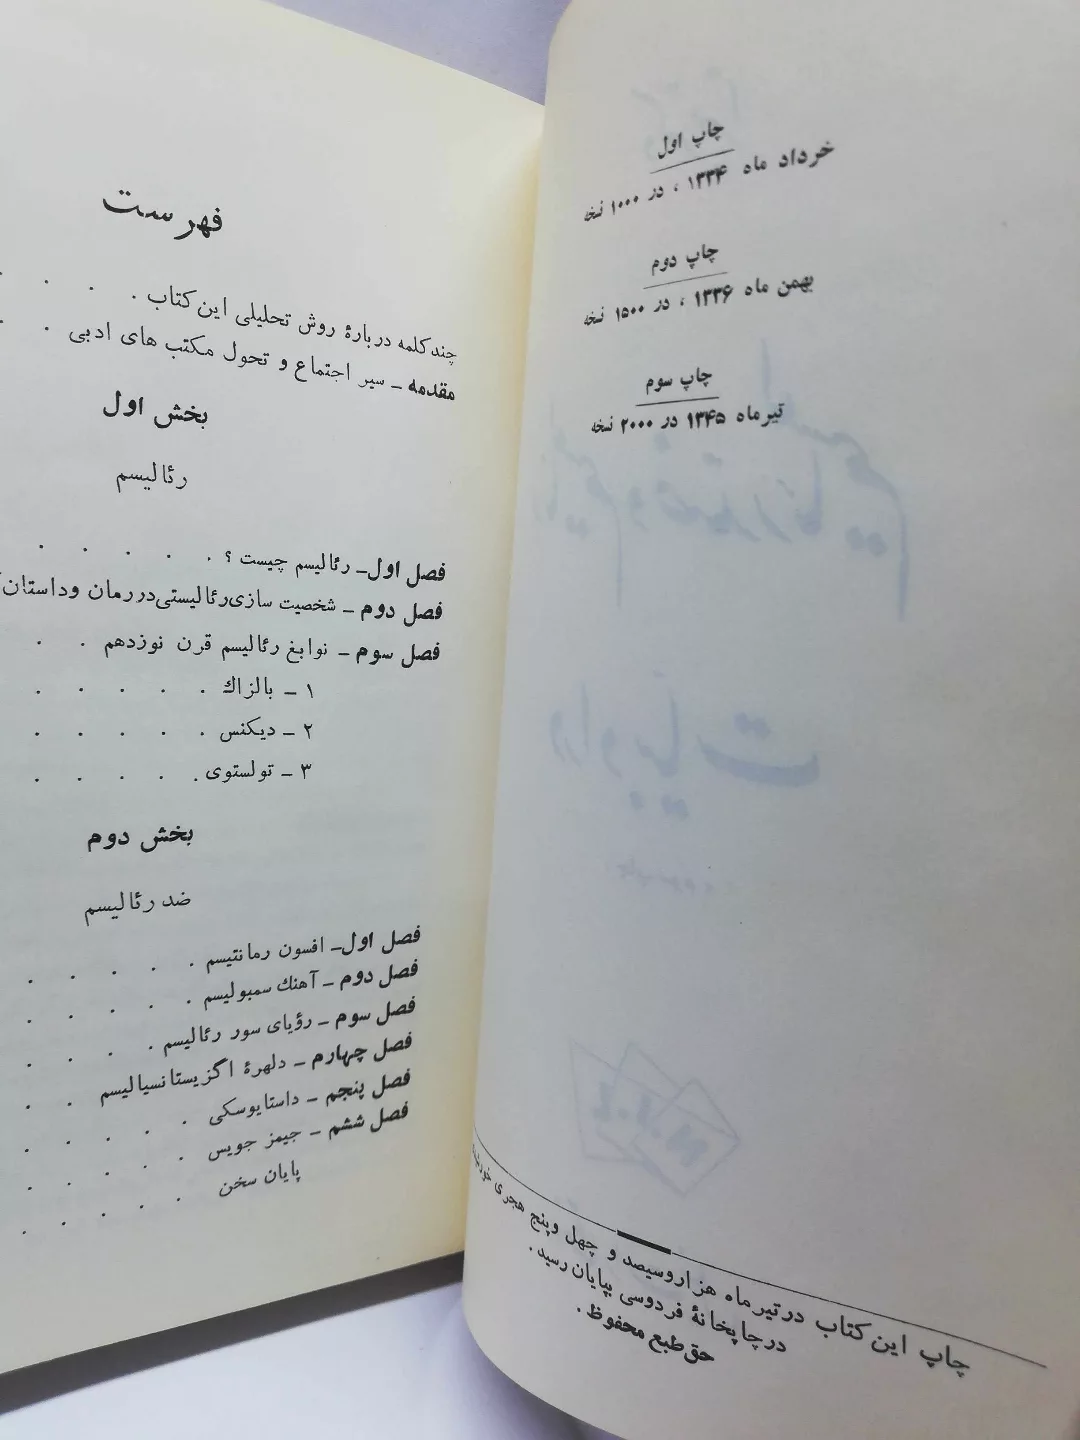 چاپ اول
خرداد ماه ۱۳۳۴ ، در ۱۰۰۰ نسخه
چاپ دوم
بهمن ماه ۱۳۳۶ ، در ۱۵۰۰ نسخه
چاپ سوم
تیرماه ۱۳۴۵ در ۲۰۰۰ نسخه
چاپ این کتاب در تیرماه هزاروسیصد و چهل وپنج هجری
در چاپخانهٔ فردوسی بپایان رسید .
حق طبع محفوظ .
فهرست
چند کلمه دربارهٔ روش تحلیلی این کتاب . . .
مقدمه ـ سیر اجتماع و تحول مکتب های ادبی . .
بخش اول
رئالیسم
فصل اول ـ رئالیسم چیست ؟ . . . . .
فصل دوم ـ شخصیت سازی رئالیستی در رمان وداستان
فصل سوم ـ نوابغ رئالیسم قرن نوزدهم . .
۱ ـ بالزاك . . . . .
۲ ـ دیکنس . . . . .
۳ ـ تولستوی . . . . .
بخش دوم
ضد رئالیسم
فصل اول ـ افسون رمانتیسم . . . . .
فصل دوم ـ آهنك سمبولیسم . . . . .
فصل سوم ـ رؤیای سور رئالیسم . . . .
فصل چهارم ـ دلهرهٔ اگزیستانسیالیسم . .
فصل پنجم ـ داستایوسکی . . . . .
فصل ششم ـ جیمز جویس . . . . .
پایان سخن . . . . .